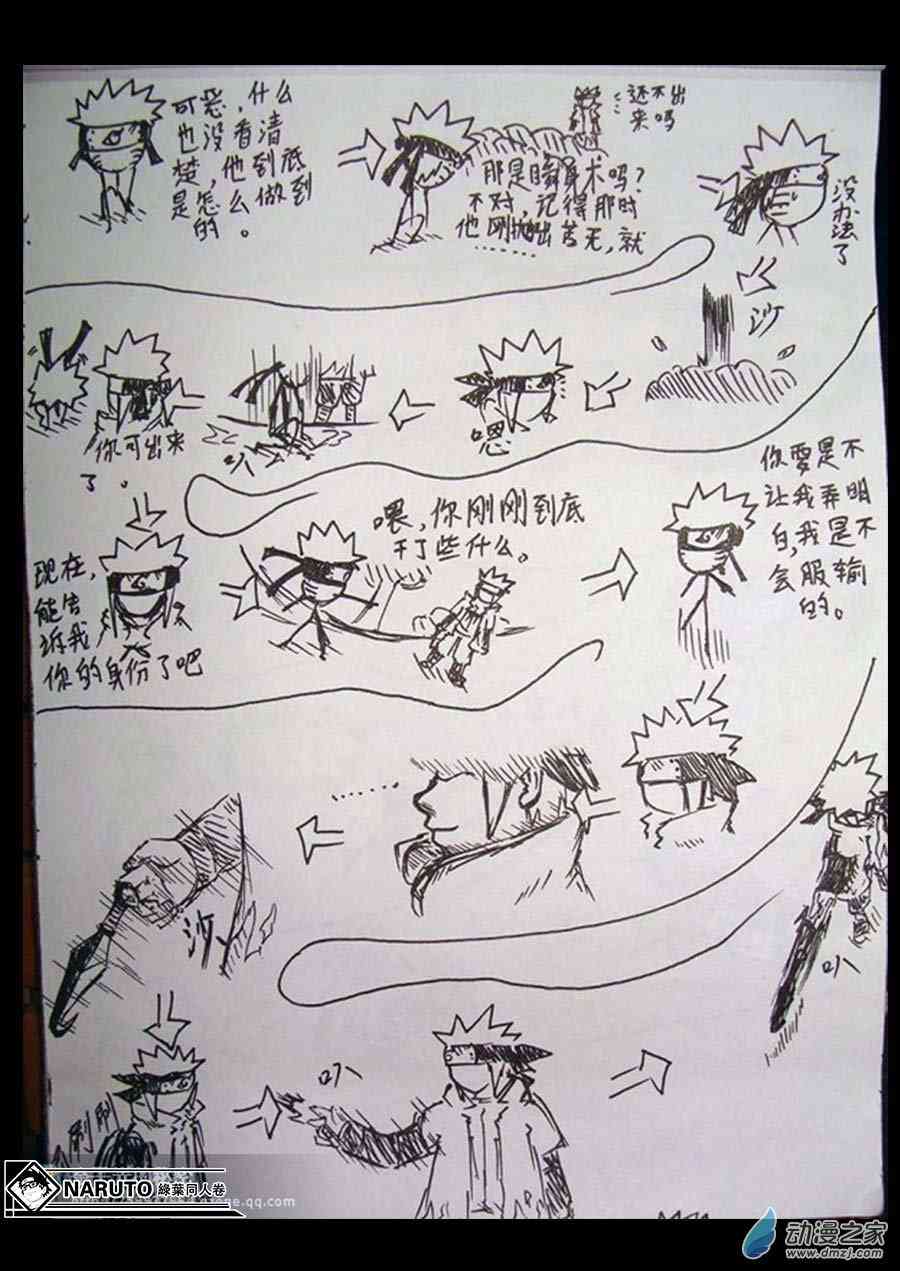 可恶，什么
也没看清
楚，他到底
是怎么做到
的。
那是瞬身术吗？
不对，记得那时
他刚抛出苦无，就
………
还不出
来吗
没办法了
沙
嗯
叭
你可出来
了。
现在，
能告
诉我
你的身份了吧
喂，你刚刚到底
干了些什么。
你要是不
让我弄明
白，我是不
会服输
的。
……
沙
叭
刷刷
叭
NARUTO 綠葉同人卷
动漫之家
www.dmzj.com